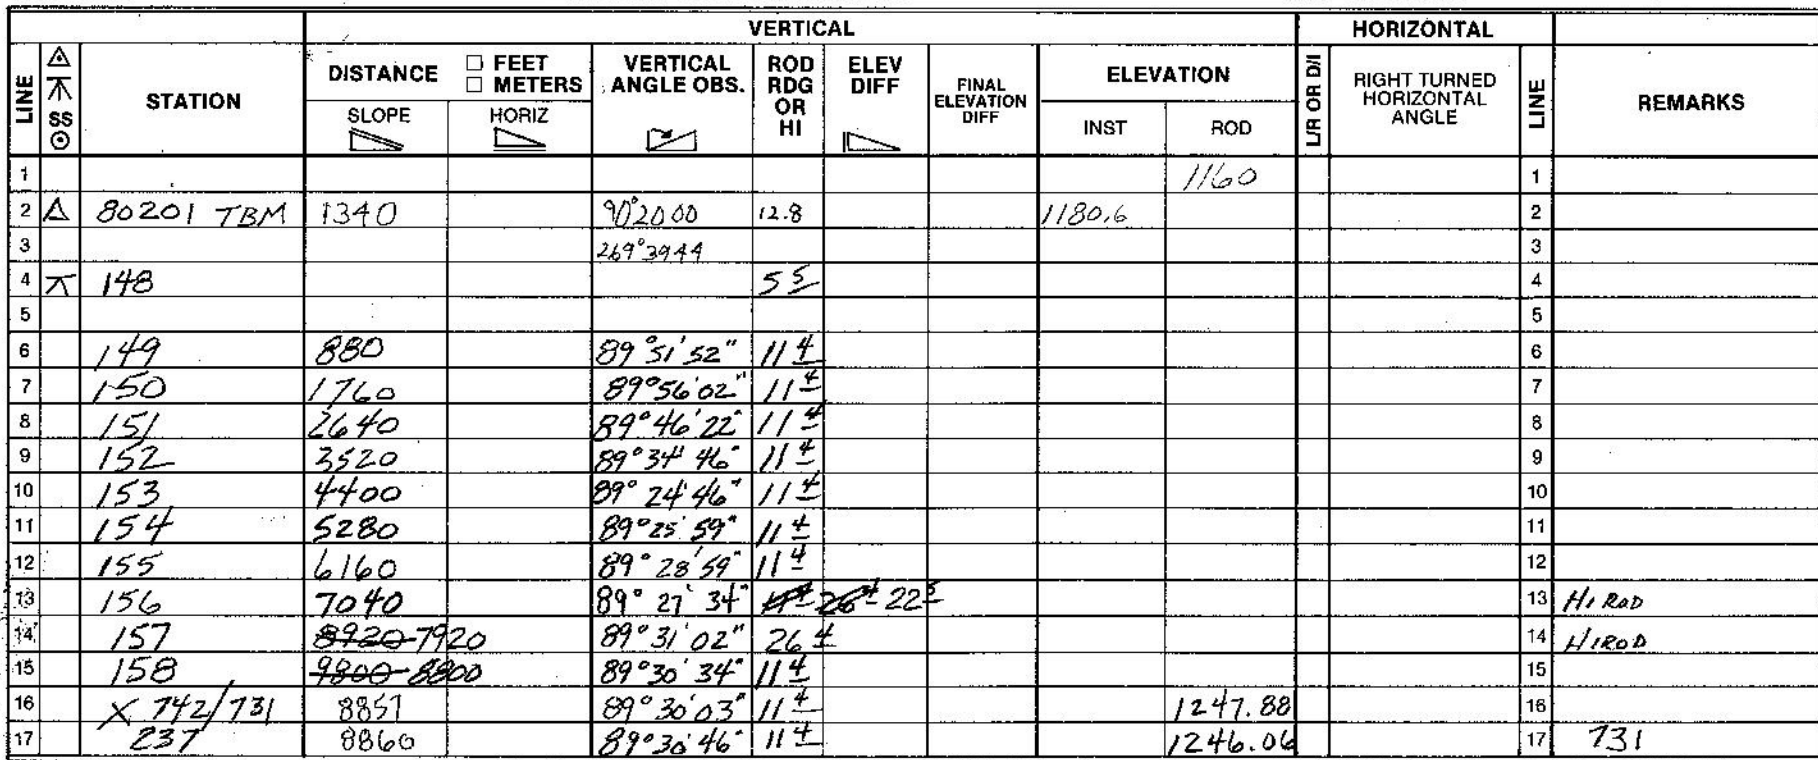 VERTICAL HORIZONTAL
LINE SS STATION DISTANCE □ FEET □ METERS SLOPE HORIZ VERTICAL ANGLE OBS. ROD RDG OR HI ELEV DIFF FINAL ELEVATION DIFF ELEVATION INST ROD L/R OR D/I RIGHT TURNED HORIZONTAL ANGLE LINE REMARKS
1 1160 1
2 80201 TBM 1340 90°20 00 12.8 1180.6 2
3 269°39 44 3
4 148 5 5 4
5 5
6 149 880 89°51'52" 11 4 6
7 150 1760 89°56'02" 11 4 7
8 151 2640 89°46'22" 11 4 8
9 152 3520 89°34'46" 11 4 9
10 153 4400 89°24'46" 11 4 10
11 154 5280 89°25'59" 11 4 11
12 155 6160 89°28'59" 11 4 12
13 156 7040 89°27'34" 26 4 22 5 13 HI ROD
14 157 8920 7920 89°31'02" 26 4 14 HI ROD
15 158 9800 8800 89°30'34" 11 4 15
16 X 742/731 8857 89°30'03" 11 4 1247.88 16
17 237 8860 89°30'46" 11 4 1246.06 17 731